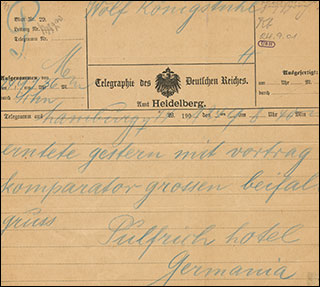 Blatt Nr. 29.
Leitung Nr.
Telegramm Nr.
Wolf Königstuhl
Aufgenommen von
Telegraphie des Deutschen Reiches.
Ausgefertigt:
Amt Heidelberg.
Telegramm aus hamburg
W. 190
um
erntete gestern mit vortrag
komparator grossen beifal
gruss
Pulfrich hotel
Germania